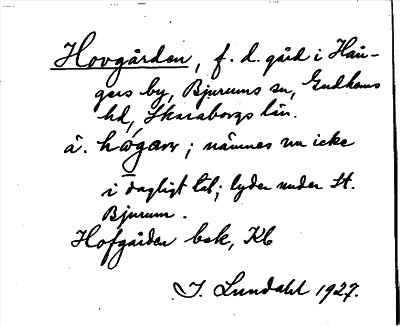 Hovgården, f. d. gård i Hau-
gers by, Bjurums sn, Gudhems
hd, Skaraborgs län.
å. hógaɷ; nämnes nu icke
i dagligt tal; lyder under St.
Bjurum.
Hofgården bsk, Kb
J. Lundahl 1927.